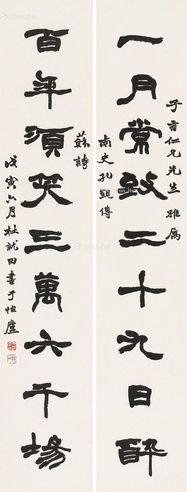 一月常致二十九日醉
百年須笑三萬六千場
子言仁兄先生 雅屬
南史孔顗傳
蘇詩
戊寅六月杜就田書于怡廬